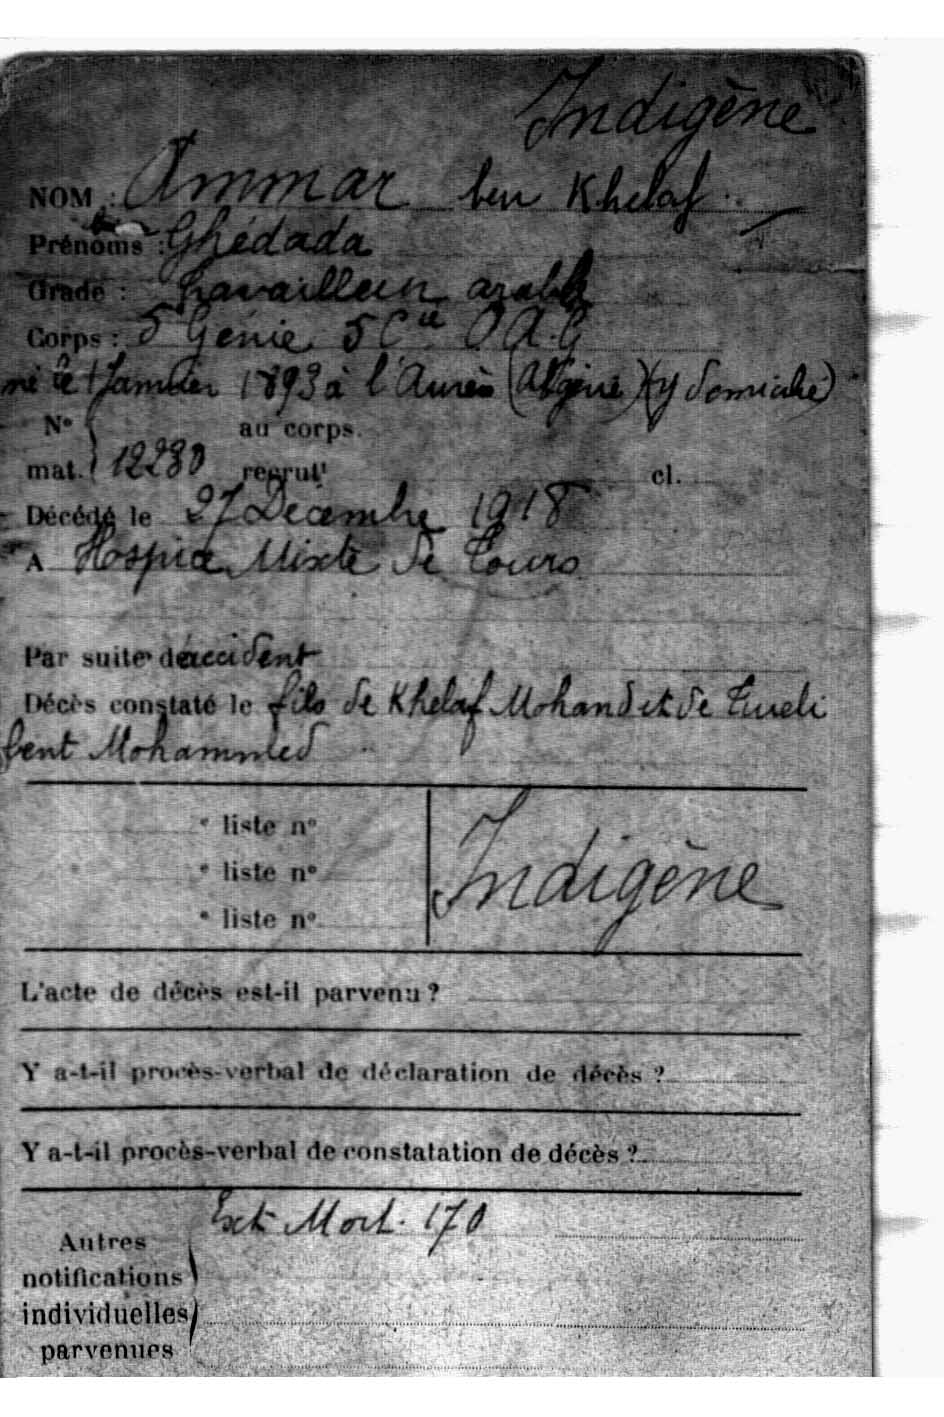 Indigène
NOM : Ammar ben Khelaf
Prénoms : Ghédada
Grade : travailleur arabe
Corps : 5 Génie 5 Cie O A. G
né le 1 Janvier 1893 à l'Aurès (Algérie) (y domicilié)
N° au corps.
mat. 12280 recrut' cl.
Décédé le 27 Décembre 1918
A Hospice Mixte de Tours
Par suite d'accident
Décès constaté le fils de Khelaf Mohand et de
bent Mohammed
° liste n°
° liste n° Indigène
° liste n°
L'acte de décès est-il parvenu ?
Y a-t-il procès-verbal de déclaration de décès ?
Y a-t-il procès-verbal de constatation de décès ?
Ext Mort. 170
Autres
notifications
individuelles
parvenues